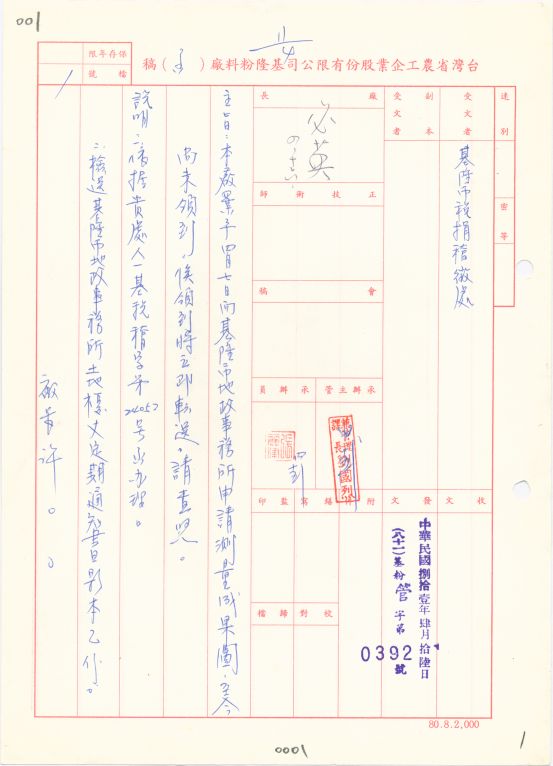 001
11/4
台灣省農工企業股份有限公司基隆粉料廠（ ）稿
保存年限
檔號
1
速別
密等
受文者
基隆市稅捐稽徵處
副本
受文者
廠長
必英
正技術師
會稿
承辦主管
承辦員
收文
發文
附件
繕寫
監印
校對
歸檔
中華民國捌拾壹年肆月拾陸日
(八十一)基粉管字第
0392號
主旨：本廠業于四月七日向基隆市地政事務所申請測量成果圖，至今
尚未領到，俟領到時立即轉送，請查照。
說明：一、依據貴處 基稅稽字第24052號函辦理。
二、檢送基隆市地政事務所土地複丈定期通知書影本乙份。
廠長許○○
80.8.2,000
0001
1